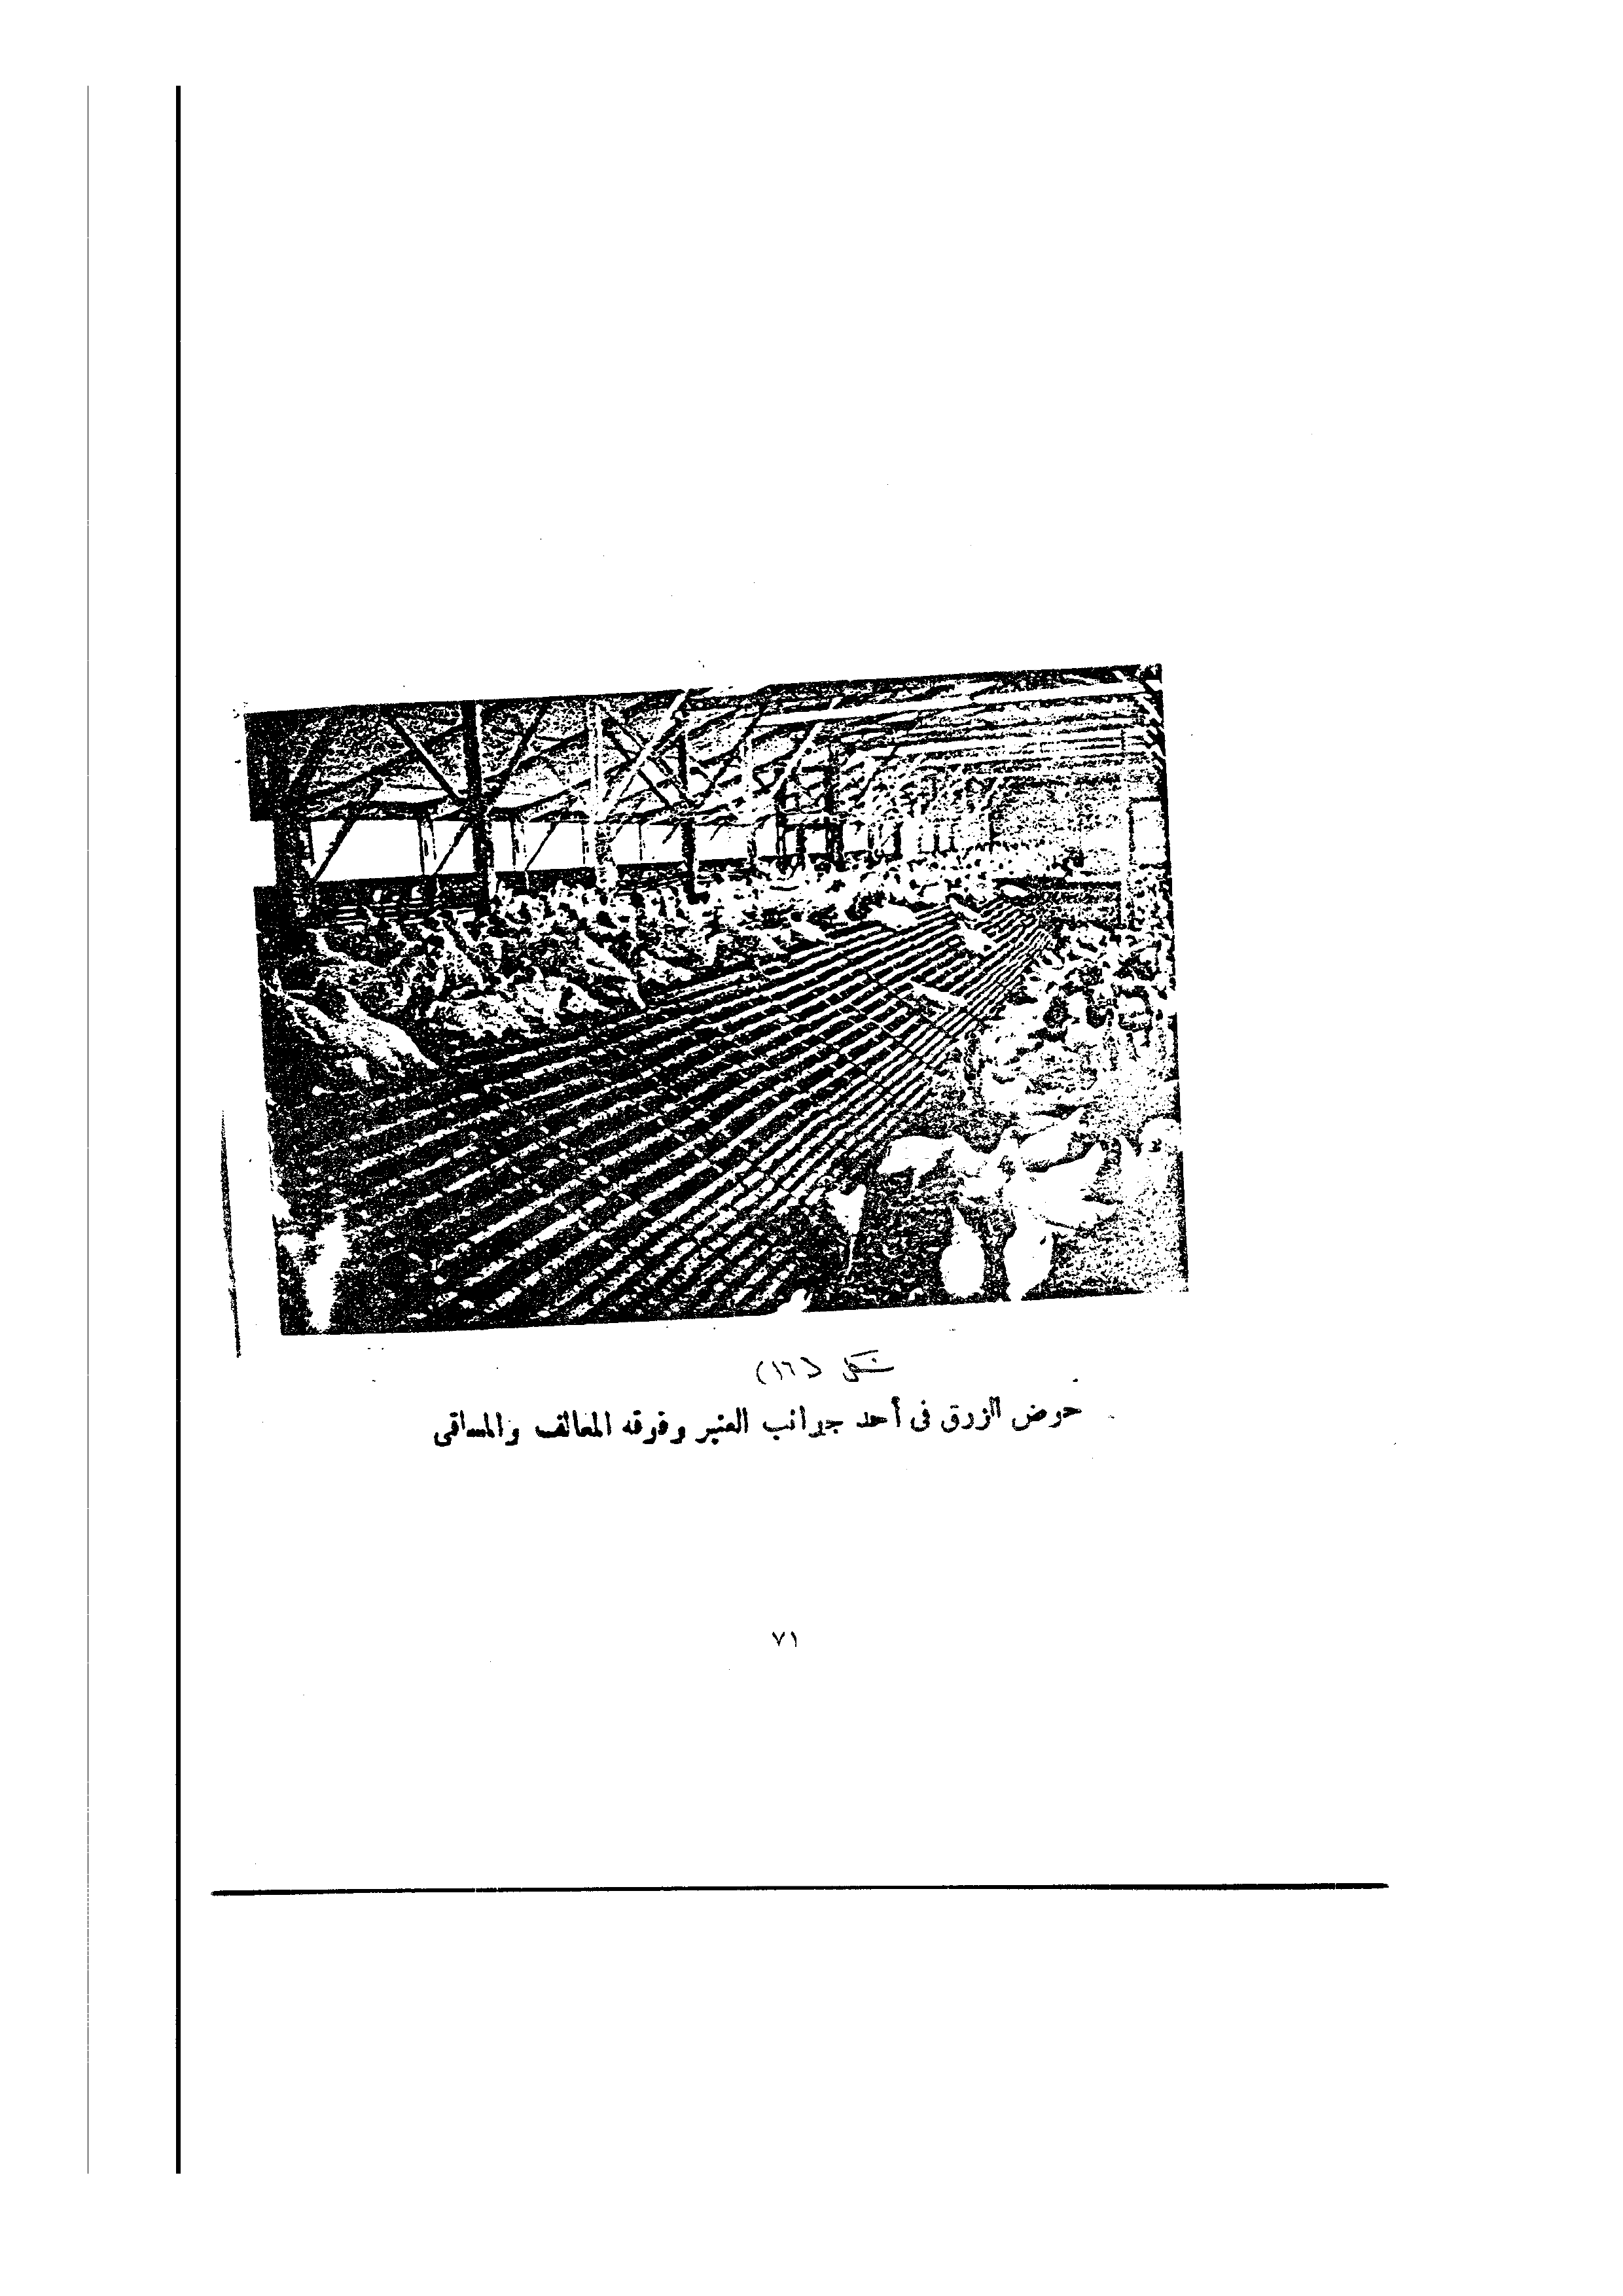 شكل (١٦)
حوض الزرق فى أحد جوانب العنبر وفوقه المعالف والمساقى
٧١